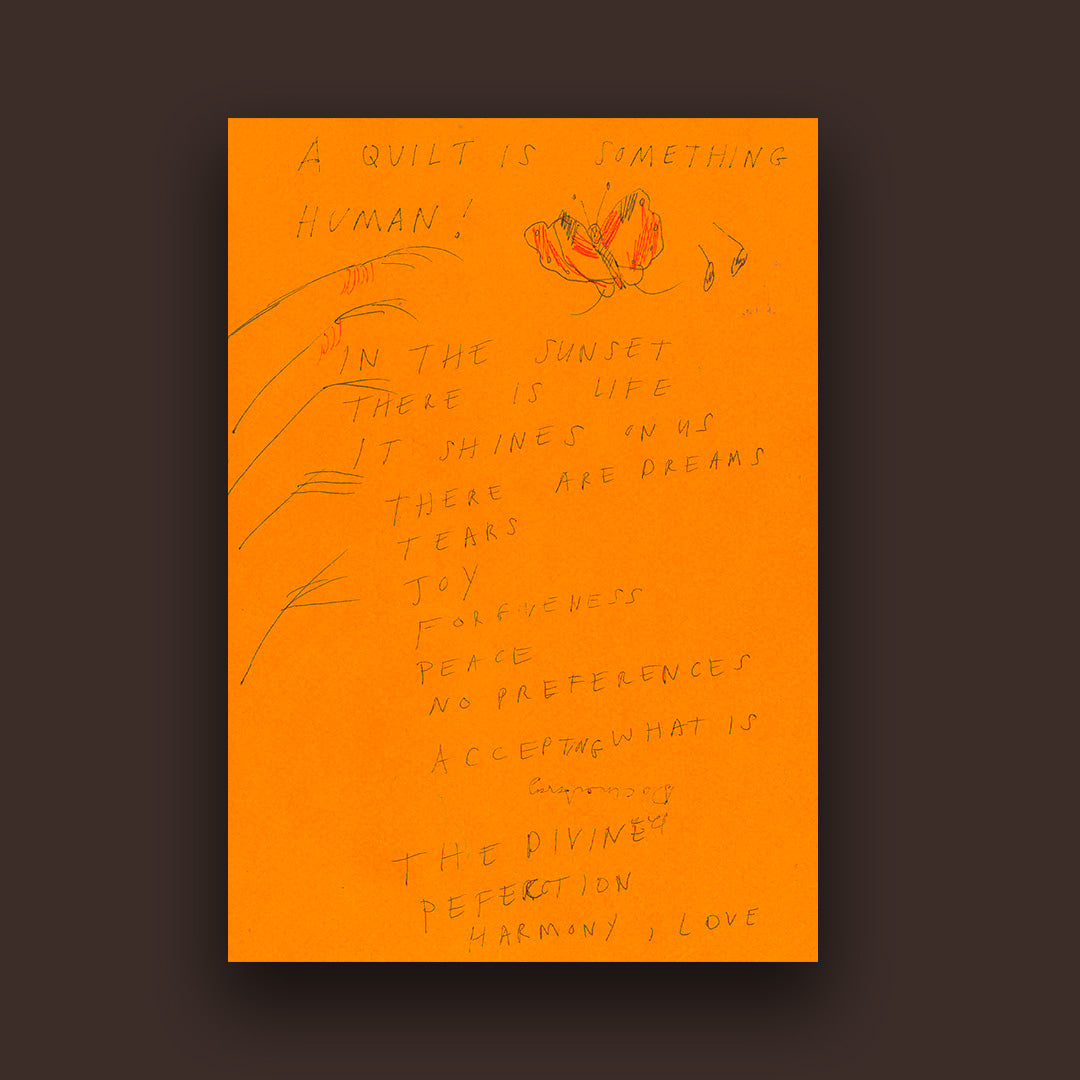 A QUILT IS SOMETHING
HUMAN!
IN THE SUNSET
THERE IS LIFE
IT SHINES ON US
THERE ARE DREAMS
TEARS
JOY
FORGIVENESS
PEACE
NO PREFERENCES
ACCEPTING WHAT IS
THE DIVINE
PEFECTION
HARMONY, LOVE